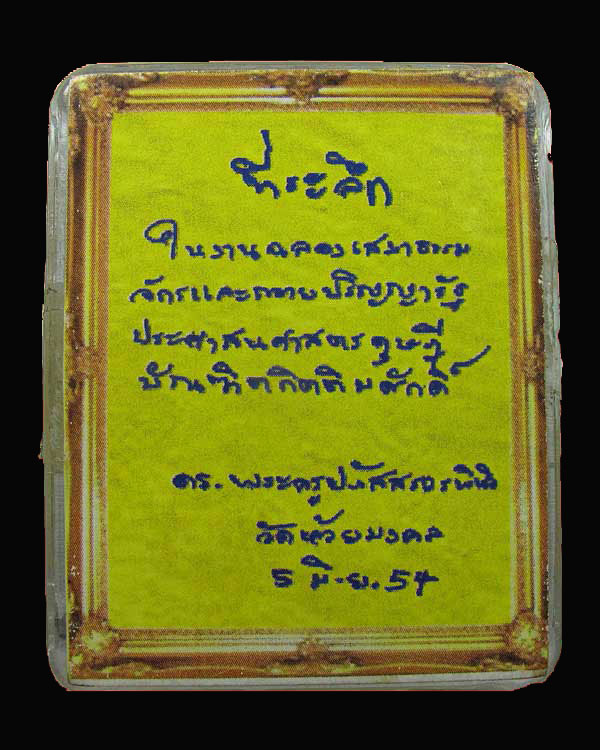 ที่ระลึก
ในงานฉลองเสมาธรรม
จักรและถวายปริญญารัฐ
ประศาสนศาสตรดุษฎี
บัณฑิตกิตติมศักดิ์
ดร.พระครูปภัสสรวรพินิจ
วัดห้วยมงคล
5 มิ.ย.54